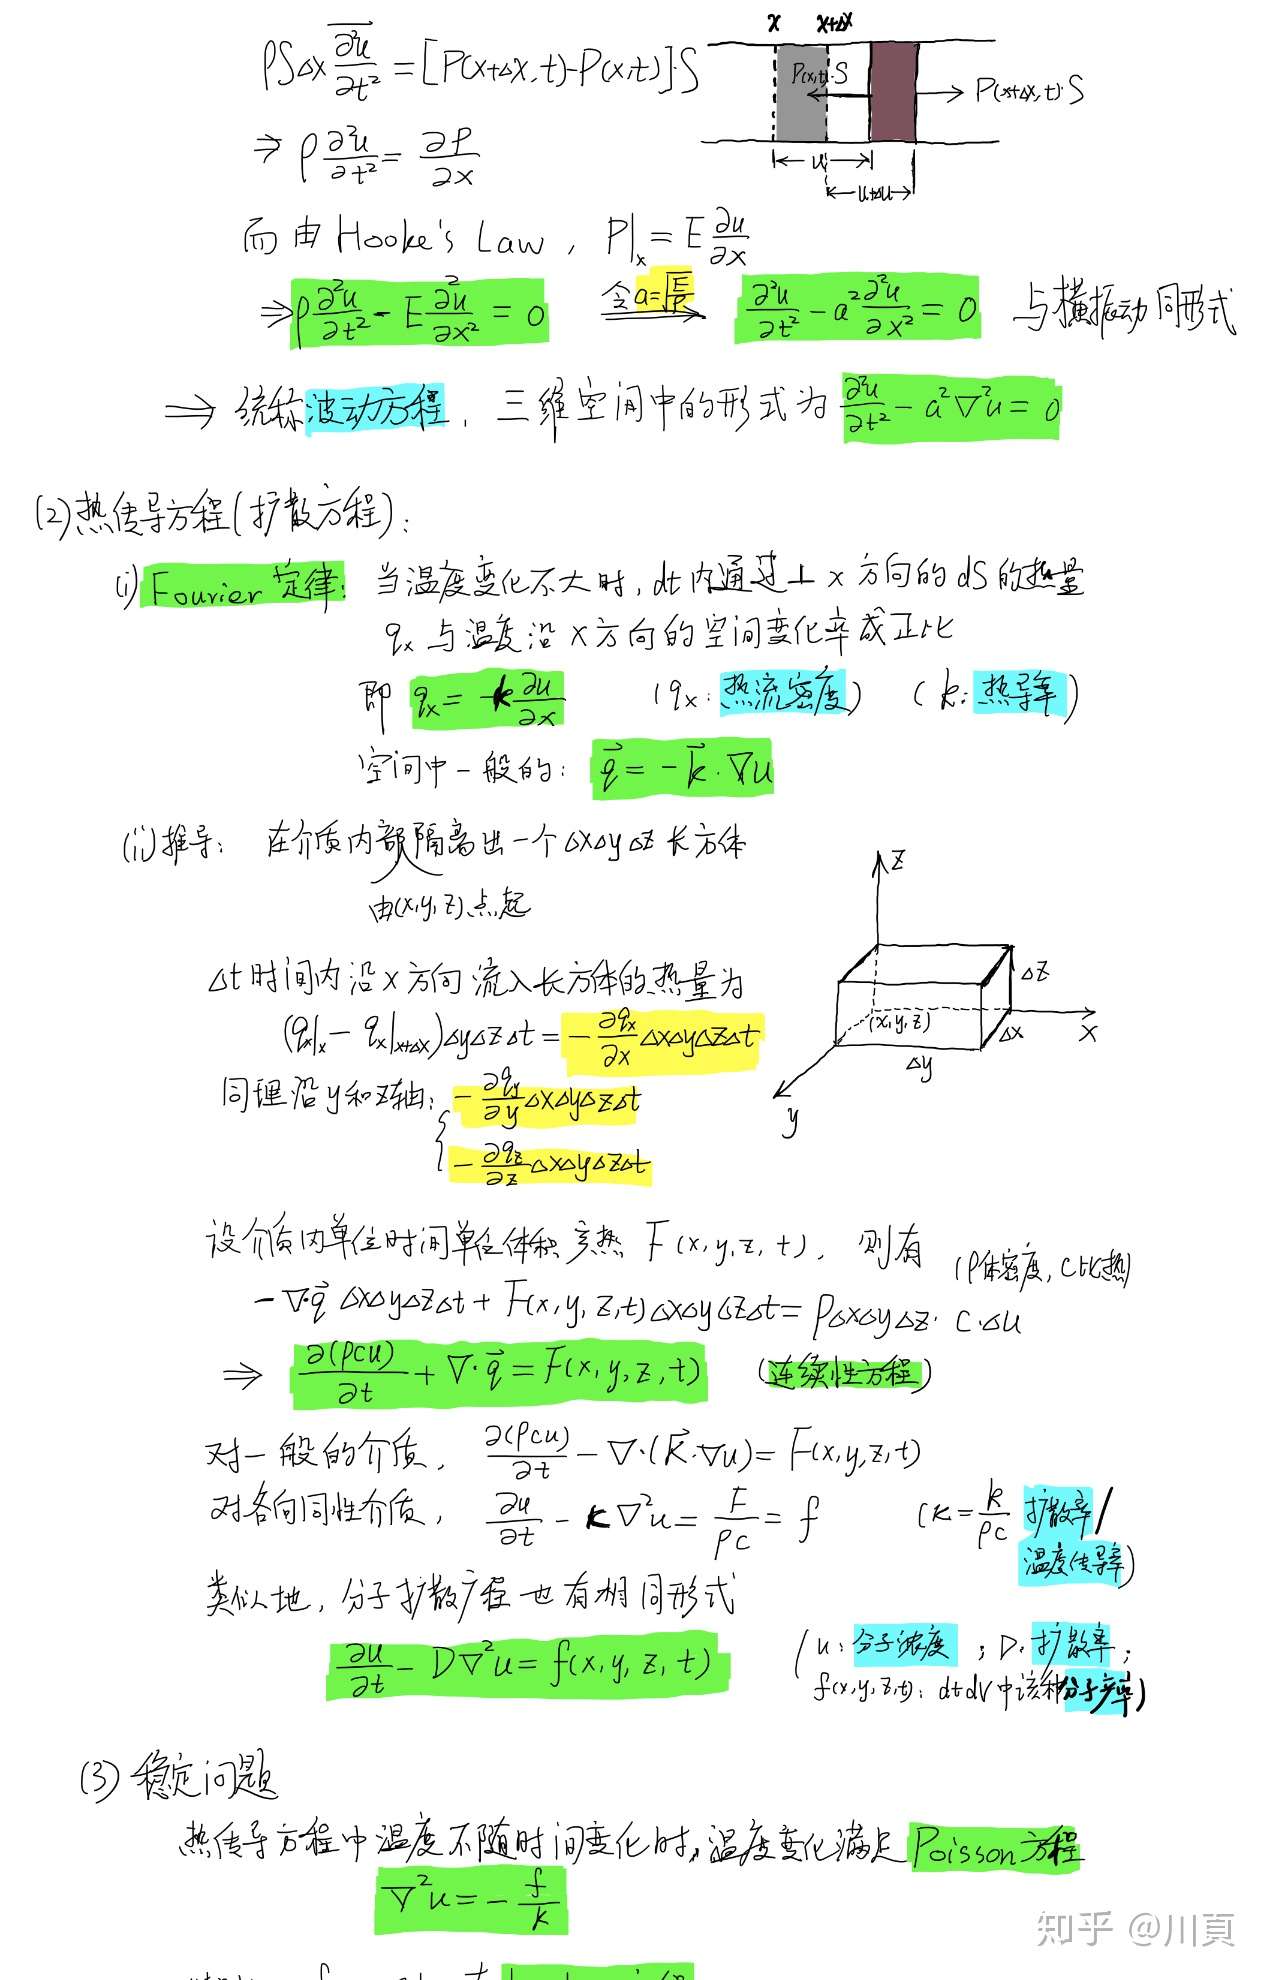 x x+Δx
ρSΔx ∂²u/∂t² = [P(x+Δx,t)-P(x,t)]·S
P(x,t)·S
P(x+Δx,t)·S
⇒ ρ ∂²u/∂t² = ∂P/∂x
u
u+Δu
而由 Hooke's Law, P|x = E ∂u/∂x
⇒ ρ ∂²u/∂t² - E ∂²u/∂x² = 0 令 a=√(E/ρ) ⇒ ∂²u/∂t² - a² ∂²u/∂x² = 0 与横振动同形式
⇒ 统称波动方程, 三维空间中的形式为 ∂²u/∂t² - a²∇²u = 0
(2)热传导方程(扩散方程):
(i) Fourier 定律: 当温度变化不大时, dt内通过⊥x方向的dS的热量
qx与温度沿x方向的空间变化率成正比
即 qx = -k ∂u/∂x (qx: 热流密度) (k: 热导率)
空间中一般的: q⃗ = -k⃗·∇u
(ii)推导: 在介质内部隔离出一个ΔxΔyΔz长方体
由(x,y,z)点起
z
Δt时间内沿x方向流入长方体的热量为
Δz
(qx|x - qx|x+Δx)ΔyΔzΔt = -∂qx/∂x ΔxΔyΔzΔt
(x,y,z)
Δx
x
Δy
同理沿y和z轴: { -∂qy/∂y ΔxΔyΔzΔt
y
-∂qz/∂z ΔxΔyΔzΔt
设介质内单位时间单位体积产热 F(x,y,z,t), 则有 (ρ体密度, c比热)
-∇·q⃗ ΔxΔyΔzΔt + F(x,y,z,t)ΔxΔyΔzΔt = ρΔxΔyΔz·c·Δu
⇒ ∂(ρcu)/∂t + ∇·q⃗ = F(x,y,z,t) (连续性方程)
对一般的介质, ∂(ρcu)/∂t - ∇·(k⃗·∇u) = F(x,y,z,t)
对各向同性介质, ∂u/∂t - κ∇²u = F/ρc = f (κ = k/ρc 扩散率/
温度传导率)
类似地, 分子扩散方程也有相同形式
∂u/∂t - D∇²u = f(x,y,z,t) (u: 分子浓度 ; D: 扩散率;
f(x,y,z,t): dtdV中该种分子产率)
(3) 稳定问题
热传导方程中温度不随时间变化时, 温度变化满足 Poisson方程
∇²u = -f/k
知乎 @川頁